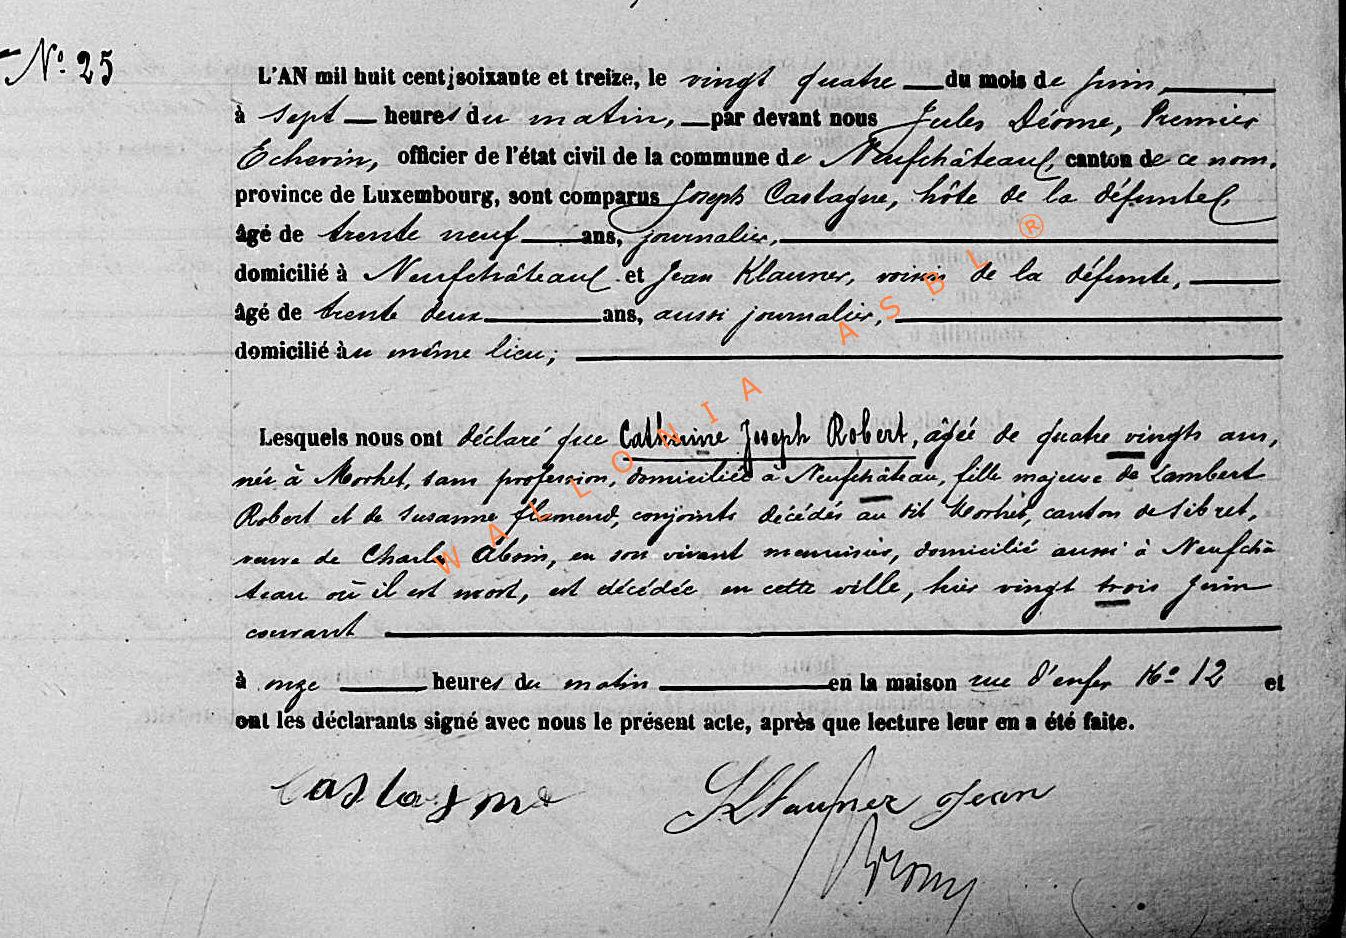 N° 25
L'AN mil huit cent soixante et treize, le vingt quatre du mois de juin,
à sept heures du matin, par devant nous Jules Dérome, Premier
Echevin, officier de l'état civil de la commune de Neufchâteau, canton de ce nom,
province de Luxembourg, sont comparus Joseph Castagne, hôte de la défunte,
âgé de trente neuf ans, journalier,
domicilié à Neufchâteau et Jean Klauner, voisin de la défunte,
âgé de trente deux ans, aussi journalier,
domicilié au même lieu;
Lesquels nous ont déclaré que Catherine Joseph Robert, âgée de quatre vingts ans,
née à Morhet, sans profession, domiciliée à Neufchâteau, fille majeure de Lambert
Robert et de Susanne flamend, conjoints décédés au dit Morhet, canton de Sibret,
veuve de Charles en son vivant menuisier, domicilié aussi à Neufchâ
teau où il est mort, est décédée en cette ville, hier vingt trois juin
courant
à onze heures du matin en la maison rue d'enfer N° 12 et
ont les déclarants signé avec nous le présent acte, après que lecture leur en a été faite.
Castagne Klauner Jean
WALLONIA ASBL ®